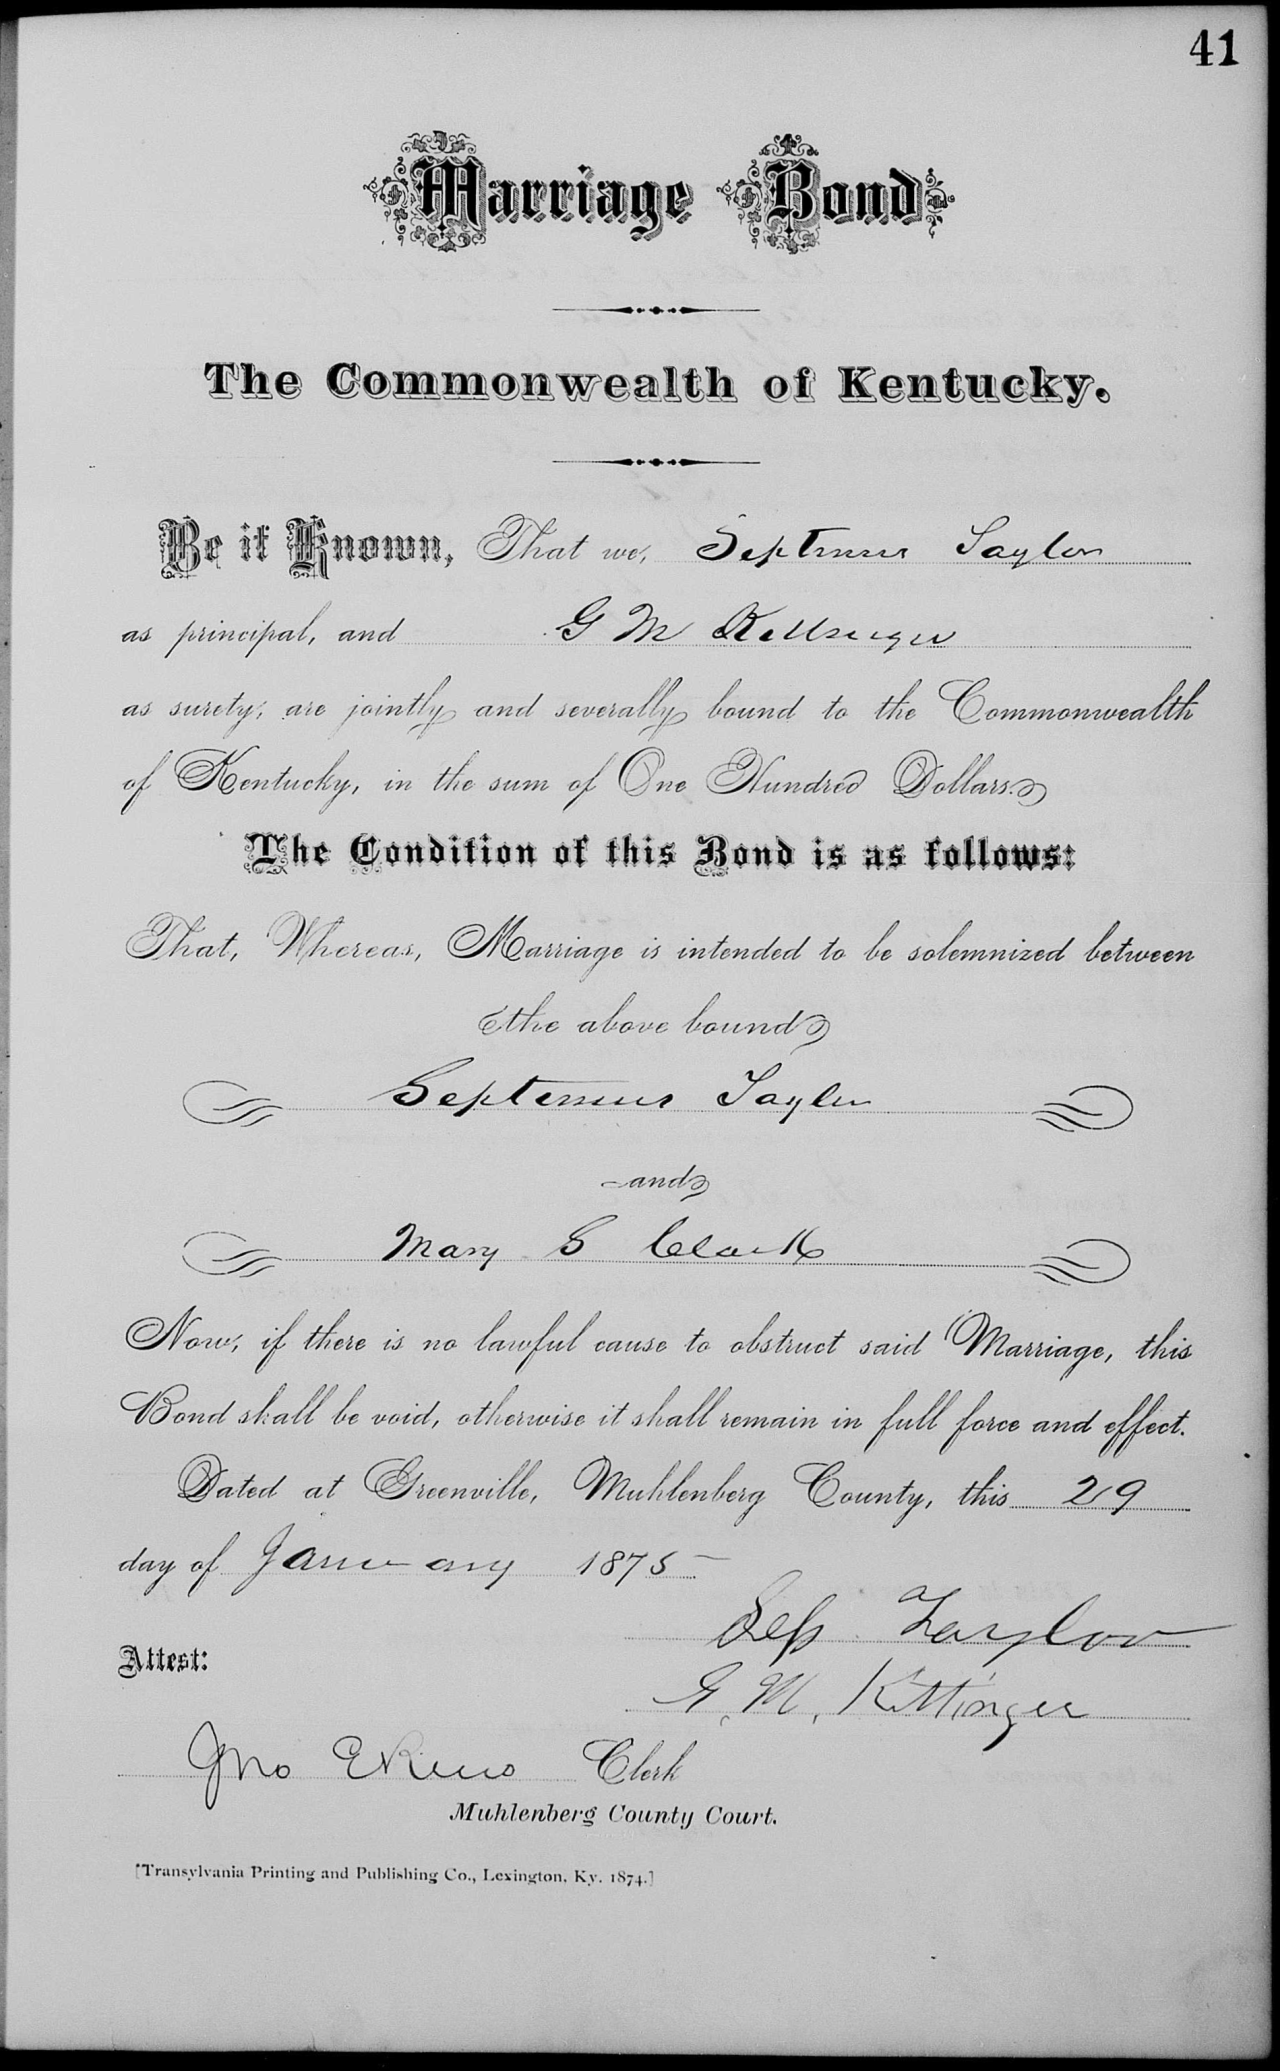 41
Marriage Bond
The Commonwealth of Kentucky.
Be it Known, That we, Septimus Taylor
as principal, and G M Kittinger
as surety, are jointly and severally bound to the Commonwealth
of Kentucky, in the sum of One Hundred Dollars.
The Condition of this Bond is as follows:
That, Whereas, Marriage is intended to be solemnized between
the above bound
Septemus Taylor
and
Mary S Clark
Now, if there is no lawful cause to obstruct said Marriage, this
Bond shall be void, otherwise it shall remain in full force and effect.
Dated at Greenville, Muhlenberg County, this 29
day of January 1875
Sep Taylor
Attest:
G. M. Kittinger
Jno E Reno Clerk
Muhlenberg County Court.
[Transylvania Printing and Publishing Co., Lexington, Ky. 1874.]